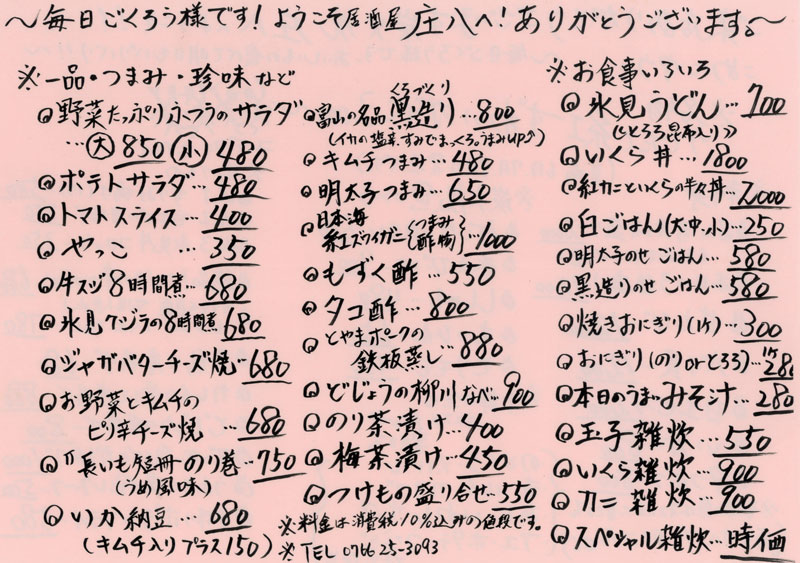 ～毎日ごくろう様です！ようこそ居酒屋庄八へ！ありがとうございます。～
※一品・つまみ・珍味など
野菜たっぷりふつうのサラダ
…大850 小480
ポテトサラダ…480
トマトスライス…400
やっこ…350
牛スジ8時間煮…680
氷見クジラの8時間煮680
ジャガバターチーズ焼680
お野菜とキムチの
ピリ辛チーズ焼…680
〃長いも短冊のり巻…750
(うめ風味)
いか納豆…680
(キムチ入りプラス150)
くろづくり
富山の名品黒造り…800
キムチつまみ…480
明太子つまみ…650
日本海
紅ズワイガニ{つまみ 酢物}…1000
もずく酢…550
タコ酢…800
とやまポークの
鉄板蒸し…880
どじょうの柳川なべ…900
のり茶漬け…400
梅茶漬け…450
つけもの盛り合せ…550
※料金は消費税10%込みの値段です。
※TEL 0766 25-3093
※お食事いろいろ
氷見うどん…700
(とろろ昆布入り)
いくら丼…1800
紅カニといくらの半々丼…2,000
白ごはん(大・中・小)…250
明太子のせごはん…580
黒造りのせごはん…580
焼きおにぎり(1ケ)…300
おにぎり(のりorとろろ)…1ケ280
本日のうまいみそ汁…280
玉子雑炊…550
いくら雑炊…900
カニ雑炊…900
スペシャル雑炊…時価